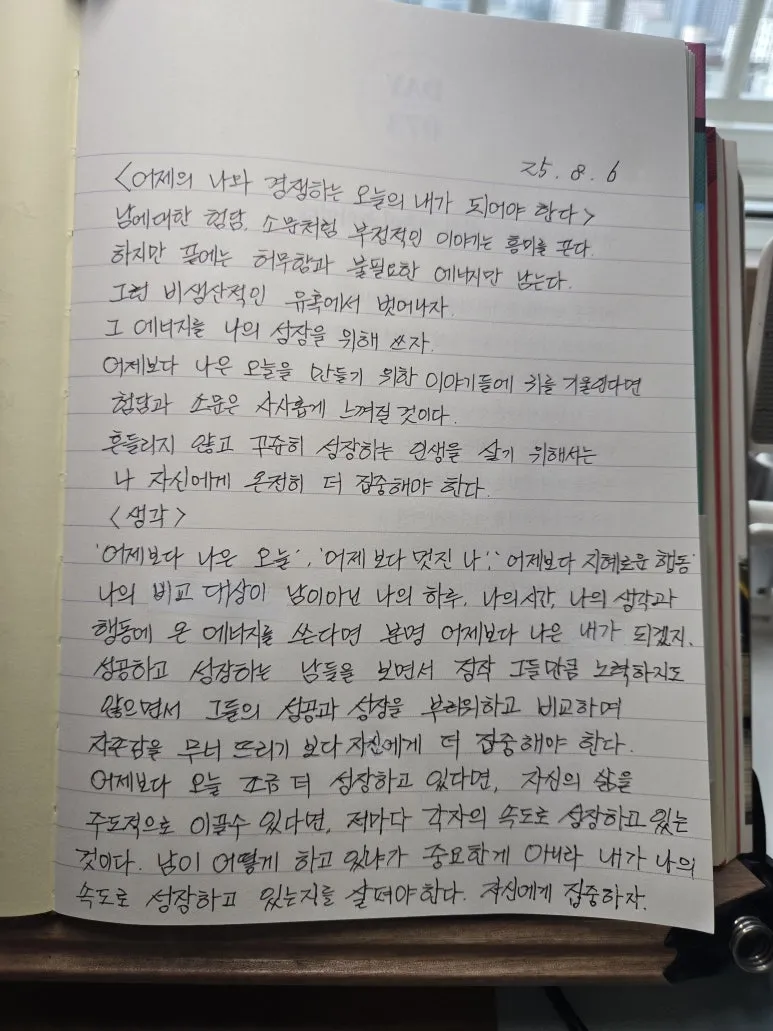 25. 8. 6
<어제의 나와 경쟁하는 오늘의 내가 되어야 한다>
남에대한 험담, 소문처럼 부정적인 이야기는 흥미를 끈다.
하지만 끝에는 허무함과 불필요한 에너지만 남는다.
그런 비생산적인 유혹에서 벗어나자.
그 에너지를 나의 성장을 위해 쓰자.
어제보다 나은 오늘을 만들기 위한 이야기들에 귀를 기울인다면
험담과 소문은 사사롭게 느껴질 것이다.
흔들리지 않고 꾸준히 성장하는 인생을 살기 위해서는
나 자신에게 온전히 더 집중해야 한다.
<생각>
'어제보다 나은 오늘', '어제 보다 멋진 나', '어제보다 지혜로운 행동'
나의 비교 대상이 남이아닌 나의 하루, 나의시간, 나의 생각과
행동에 온 에너지를 쓴다면 분명 어제보다 나은 내가 되겠지.
성공하고 성장하는 남들을 보면서 정작 그들만큼 노력하지도
않으면서 그들의 성공과 성장을 부러워하고 비교하며
자존감을 무너 뜨리기 보다 자신에게 더 집중해야 한다.
어제보다 오늘 조금 더 성장하고 있다면, 자신의 삶을
주도적으로 이끌수 있다면, 저마다 각자의 속도로 성장하고 있는
것이다. 남이 어떻게 하고 있냐가 중요한게 아니라 내가 나의
속도로 성장하고 있는지를 살펴야한다. 자신에게 집중하자.